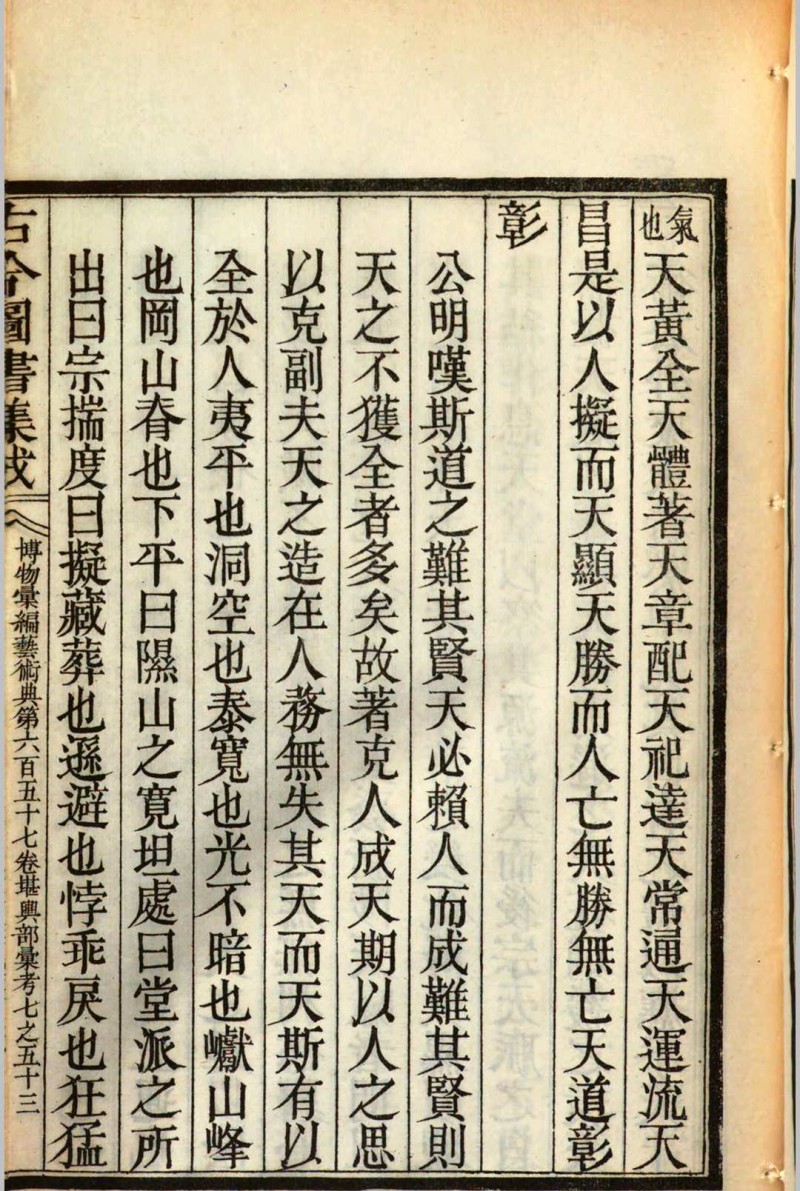 氣也天黃全天體著天章配天祀達天常通天運流天
昌是以人擬而天顯天勝而人亡無勝無亡天道彰
彰
公明嘆斯道之難其賢天必賴人而成難其賢則
天之不獲全者多矣故著克人成天期以人之思
以克副夫天之造在人務無失其天而天斯有以
全於人夷平也洞空也泰寬也光不暗也巘山峰
也岡山脊也下平曰隰山之寬坦處曰堂派之所
出曰宗揣度曰擬藏葬也遜避也悖乖戾也狂猛
古今圖書集成
博物彙編藝術典第六百五十七卷堪輿部彙考七之五十三